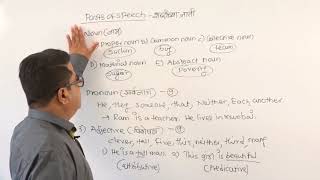 Parts of speech - शब्दांच्या जाती
Noun (नाम)
Proper noun b) Common noun c) Collective noun
Sachin boy team
D) Material noun E) Abstract noun
Sugar Poverty
Pronoun (सर्वनाम) - 9
He, they, someone, that, Neither, Each another
→ Ram is a teacher. He lives in Mumbai.
3) Adjective (विशेषण) - 9
clever, tall, five, this, neither, third, many
1) He is a tall man. 2) This girl is beautiful
(Attributive) (Predicative)